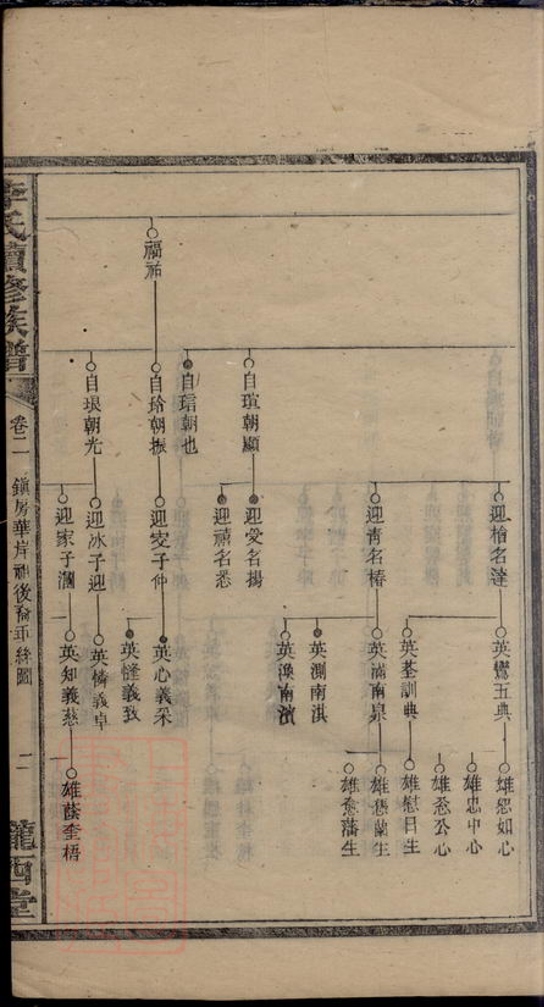 福祐
自瑄朝顯
自琩朝也
自玲朝振
自珢朝光
迎檜名達
迎青名椿
迎愛名揚
迎禧名悉
迎安子仲
迎冰子迎
迎家子瀾
英鸞五典
英荃訓典
英滿南泉
英測南淇
英渙南濱
英心義采
英鏗義致
英憐義卓
英知義慈
雄恕如心
雄忠中心
雄忩公心
雄慰日生
雄憑蘭生
雄惷藩生
雄蔭奎梧
李氏續修族譜
卷二
鎮房華岸祖後裔
圖
二
隴西堂